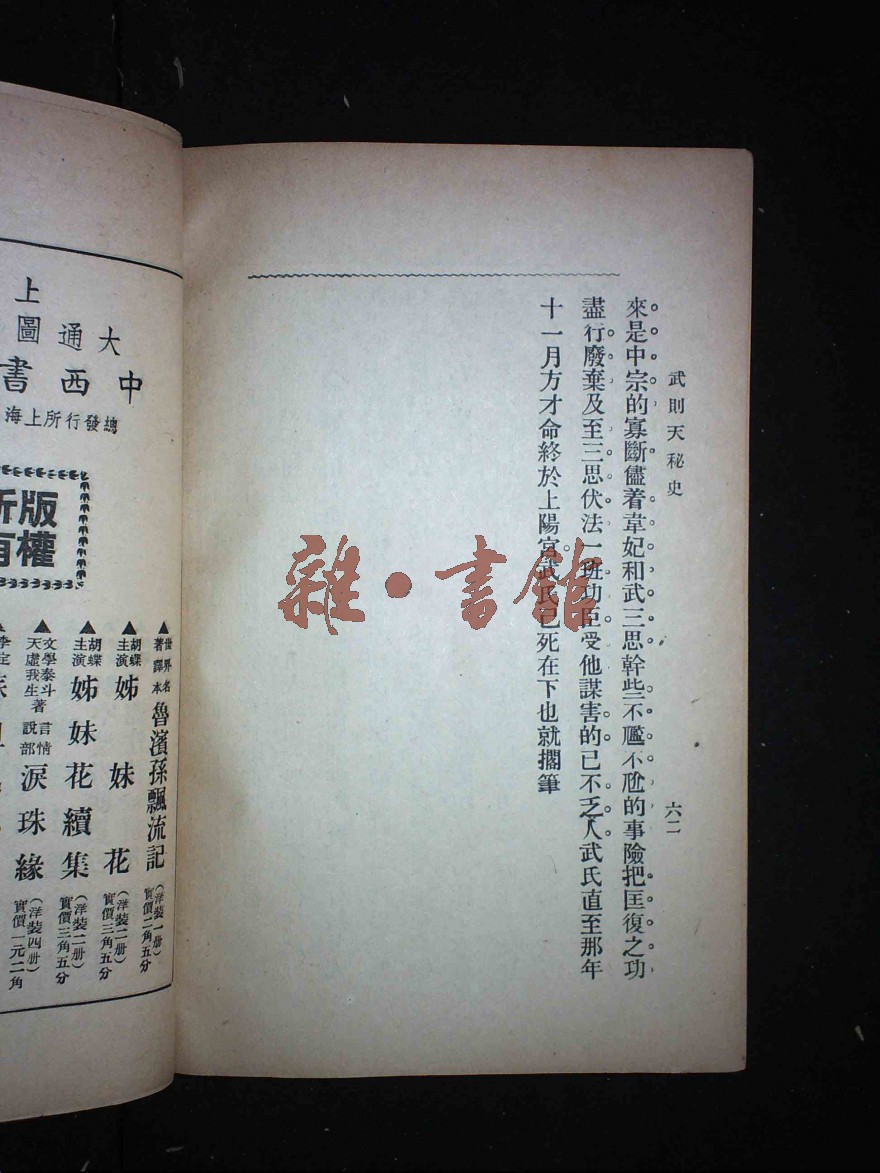 武則天秘史
六二
來是中宗的寡斷儘着韋妃和武三思幹些不尷不尬的事險把匡復之功
盡行廢棄及至三思伏法一班功臣受他謀害的已不乏人武氏直至那年
十一月方才命終於上陽宮武氏已死在下也就擱筆
雜·書館
上
大通圖
中西書
總發行所上海
版權
所有
▲世界名著譯本魯濱孫飄流記(洋裝一册)實價二角五分
▲胡蝶主演姊妹花(洋裝二册)實價三角五分
▲胡蝶主演姊妹花續集(洋裝二册)實價三角五分
▲文學泰斗天虛我生著言情說部淚珠緣(洋裝四册)實價一元二角